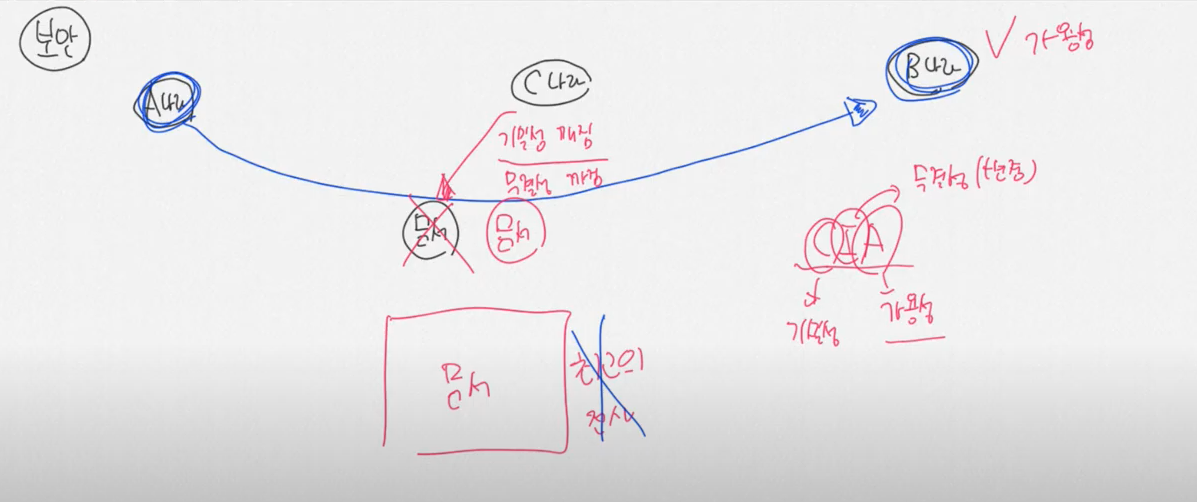 보안
A나라
C나라
B나라
가용성
기밀성 깨짐
무결성 깨짐
문서
문서
무결성 (변중)
CIA
기밀성
가용성
문서